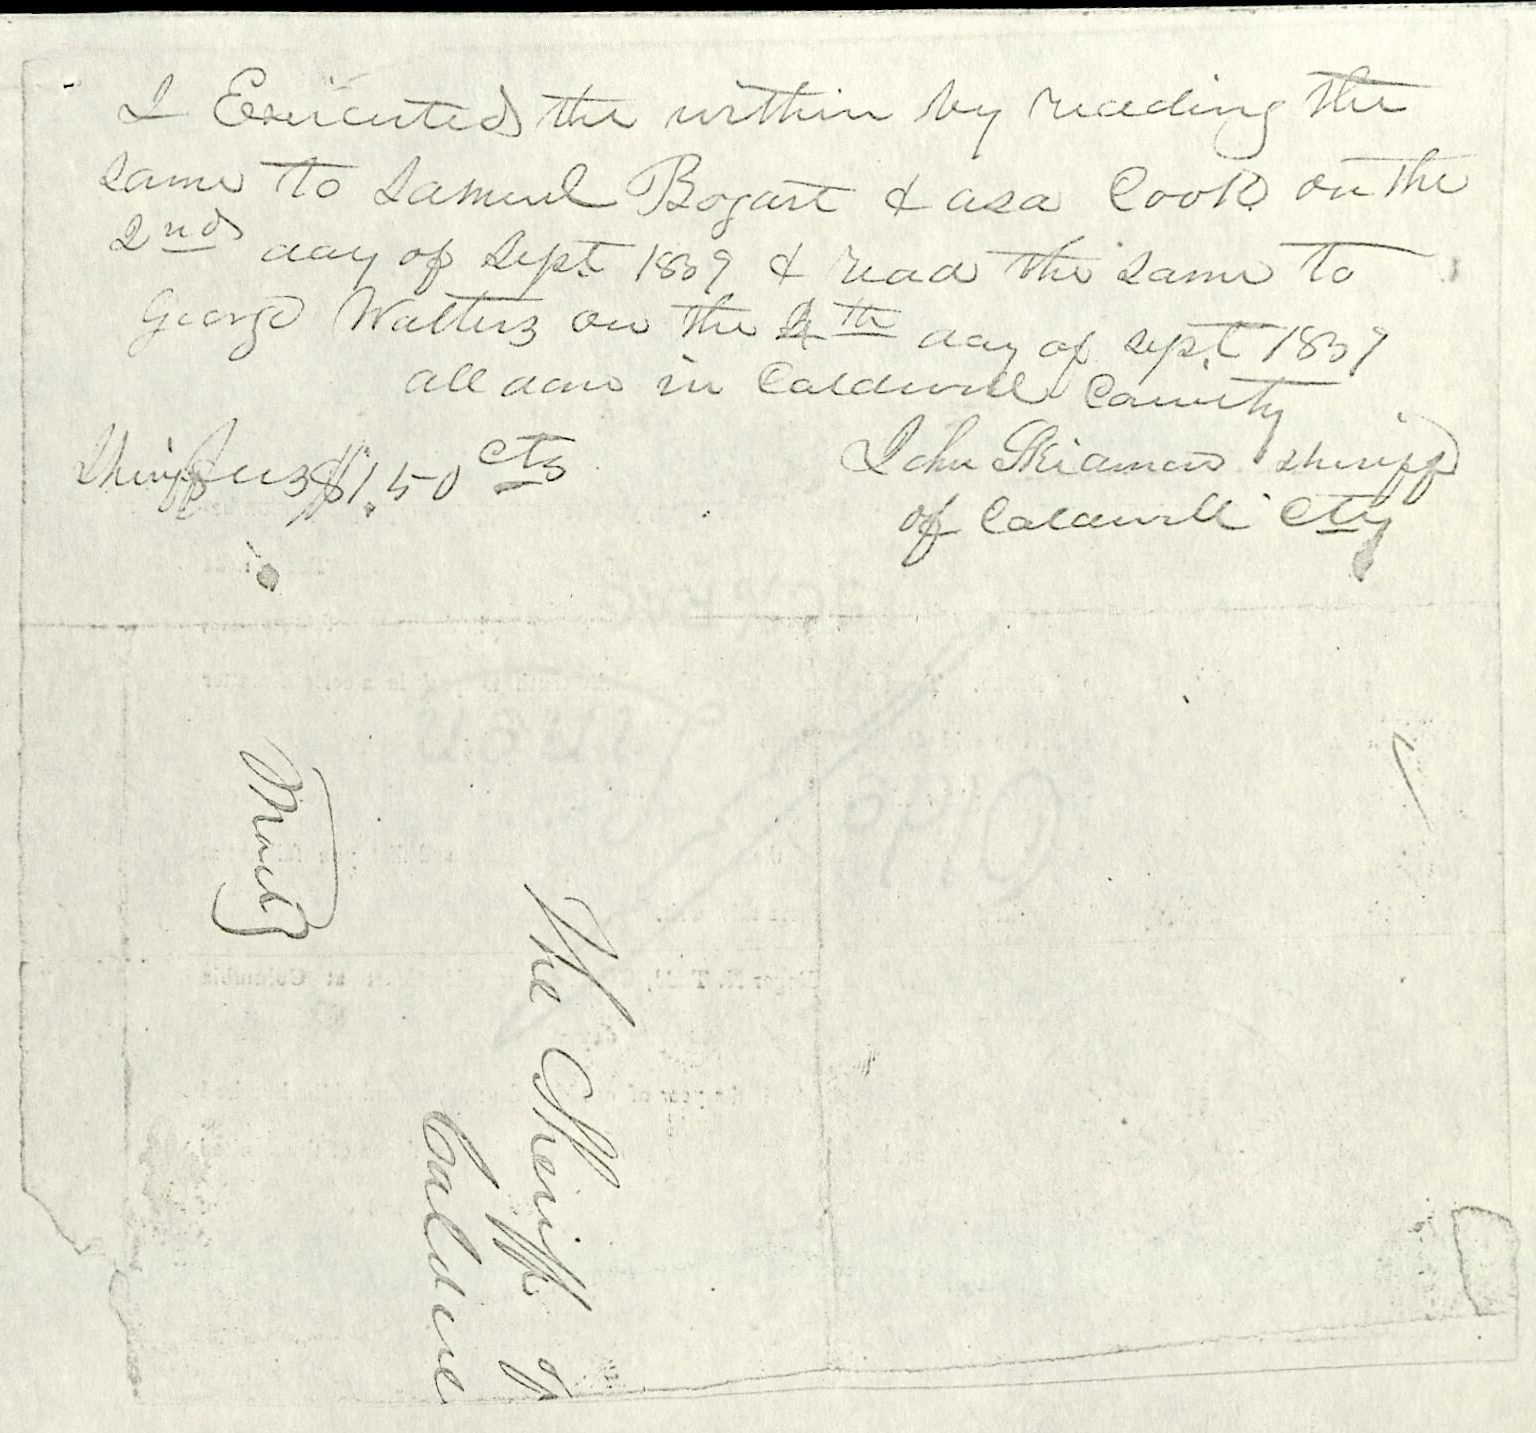 I Exicuted the within by reading the
same to Samuel Bogart & asa Cook on the
2nd day of Sept 1839 & read the same to
George Walters on the 4th day of Sept 1839
all done in Caldwell County
Sheriff fees $1.50 cts
John Skidmore sheriff
of Caldwell Cty
The Sheriff of
Caldwe